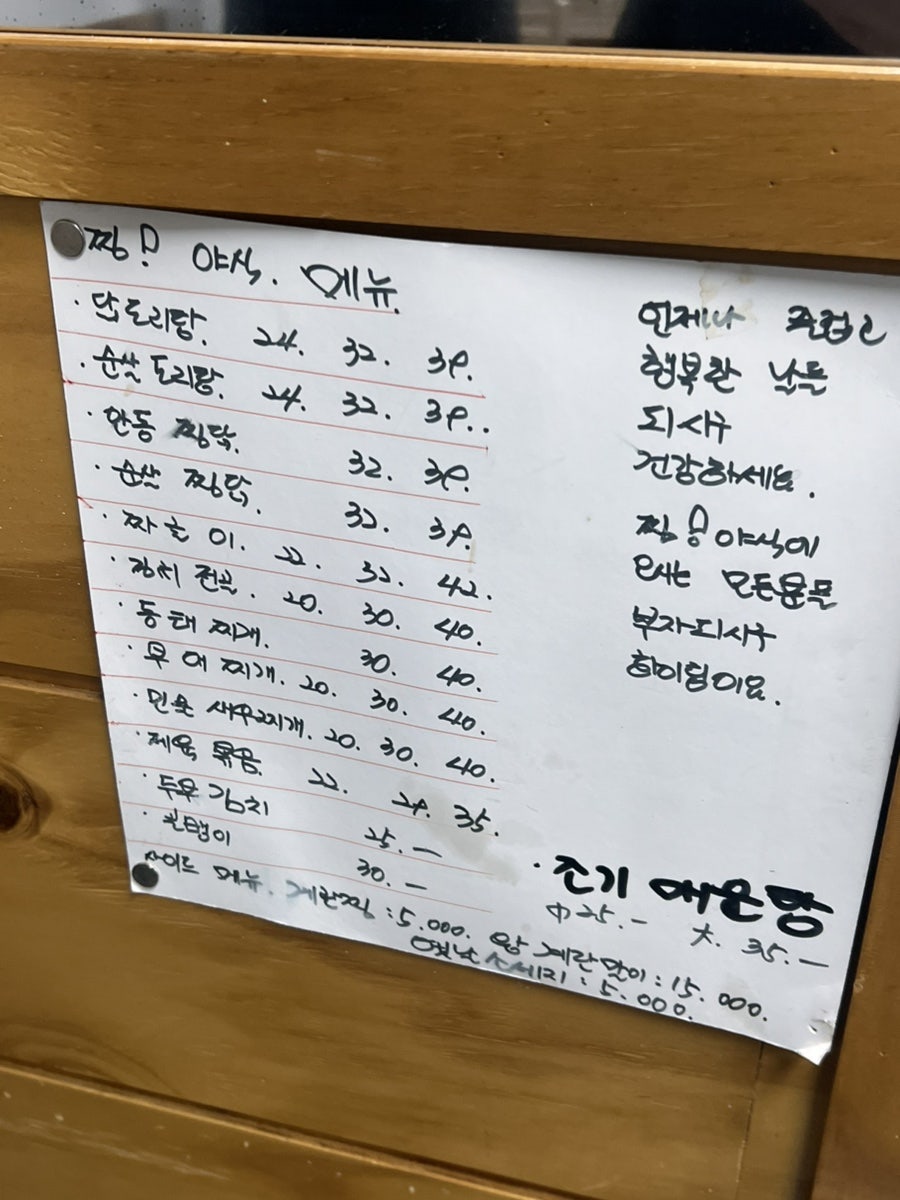 찜! 야식. 메뉴.
· 닭도리탕. 24. 32. 39.
· 순살 도리탕. 24. 32. 39..
· 안동 찜닭. 32. 39.
· 순살 찜닭. 32. 39.
· 짜글이. 22. 32. 42.
· 김치 전골. 20. 30. 40.
· 동태 찌개. 30. 40.
찌개. 20. 30. 40.
· 민물 새우찌개. 20. 30. 40.
· 제육 볶음. 22. 29. 35.
· 두부 김치 25.–
· 골뱅이 30.–
사이드 메뉴. 계란찜 : 5.000. 왕 계란말이 : 15.000.
옛날 소세지 : 5.000.
언제나 즐겁고
행복한 날들
되시구
건강하세요.
찜! 야식에
오시는 모든분들
부자되시구
화이팅이요.
· 조기 매운탕
中 25.– 大. 35.–